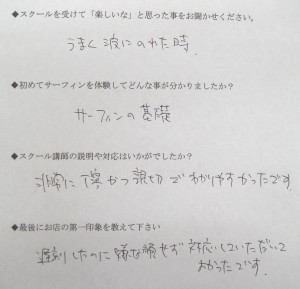 ◆スクールを受けて「楽しいな」と思った事をお聞かせください。
うまく波にのれた時。
◆初めてサーフィンを体験してどんな事が分かりましたか？
サーフィンの基礎
◆スクール講師の説明や対応はいかがでしたか？
非常に丁寧かつ親切でわかりやすかったです。
◆最後にお店の第一印象を教えて下さい
遅刻したのに嫌な顔せず対応していただいて
よかったです。